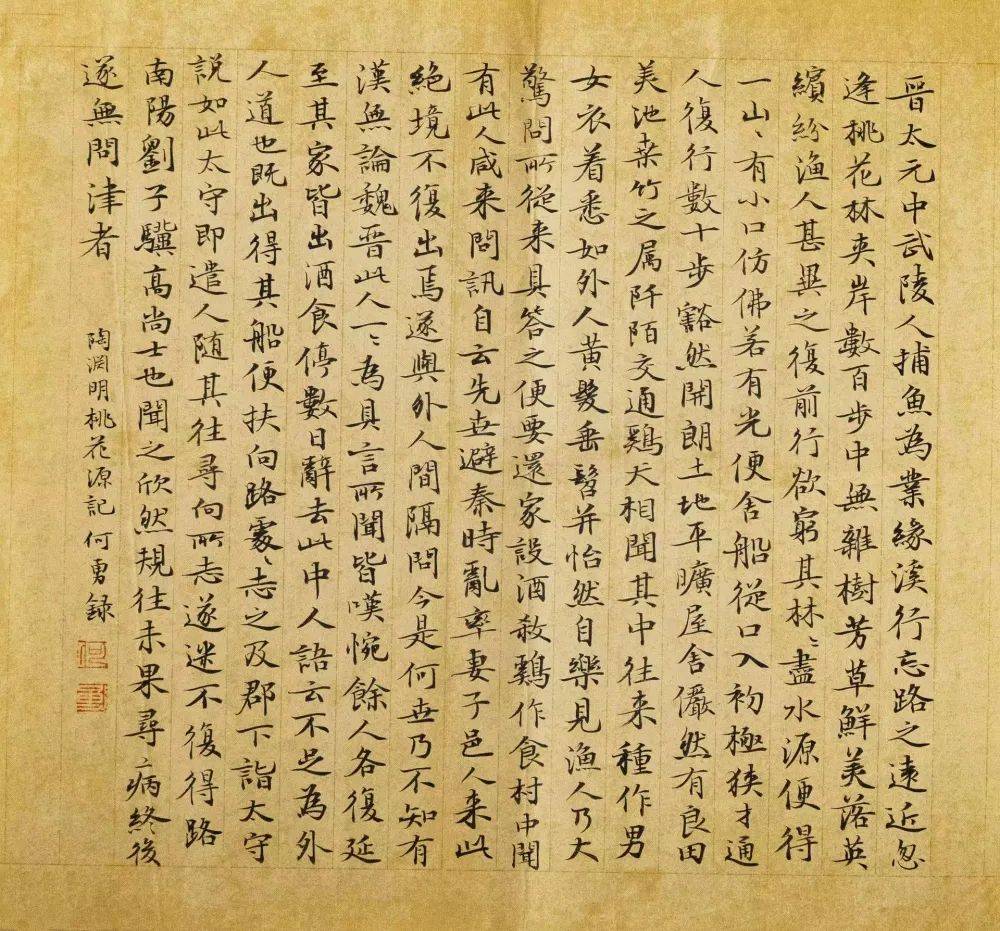 晉太元中武陵人捕魚為業緣溪行忘路之遠近忽
逢桃花林夹岸數百步中無雜樹芳草鮮美落英
繽紛渔人甚異之復前行欲窮其林〻盡水源便得
一山〻有小口仿佛若有光便舍船從口入初極狭才通
人復行數十步豁然開朗土地平曠屋舍儼然有良田
美池桒竹之属阡陌交通鷄犬相聞其中往来種作男
女衣着悉如外人黃髮垂髫并怡然自樂見渔人乃大
驚問所從来具答之便要還家設酒殺鷄作食村中聞
有此人咸来問訊自云先世避秦時亂率妻子邑人来此
絕境不復出焉遂與外人間隔問今是何世乃不知有
漢無論魏晉此人一〻為具言所聞皆嘆惋餘人各復延
至其家皆出酒食停數日辭去此中人語云不足為外
人道也既出得其船便扶向路處〻志之及郡下詣太守
說如此太守即遣人随其往尋向所志遂迷不復得路
南陽劉子驥高尚士也聞之欣然規往未果尋〻病終後
遂無問津者
陶渊明桃花源記何勇録
何
勇